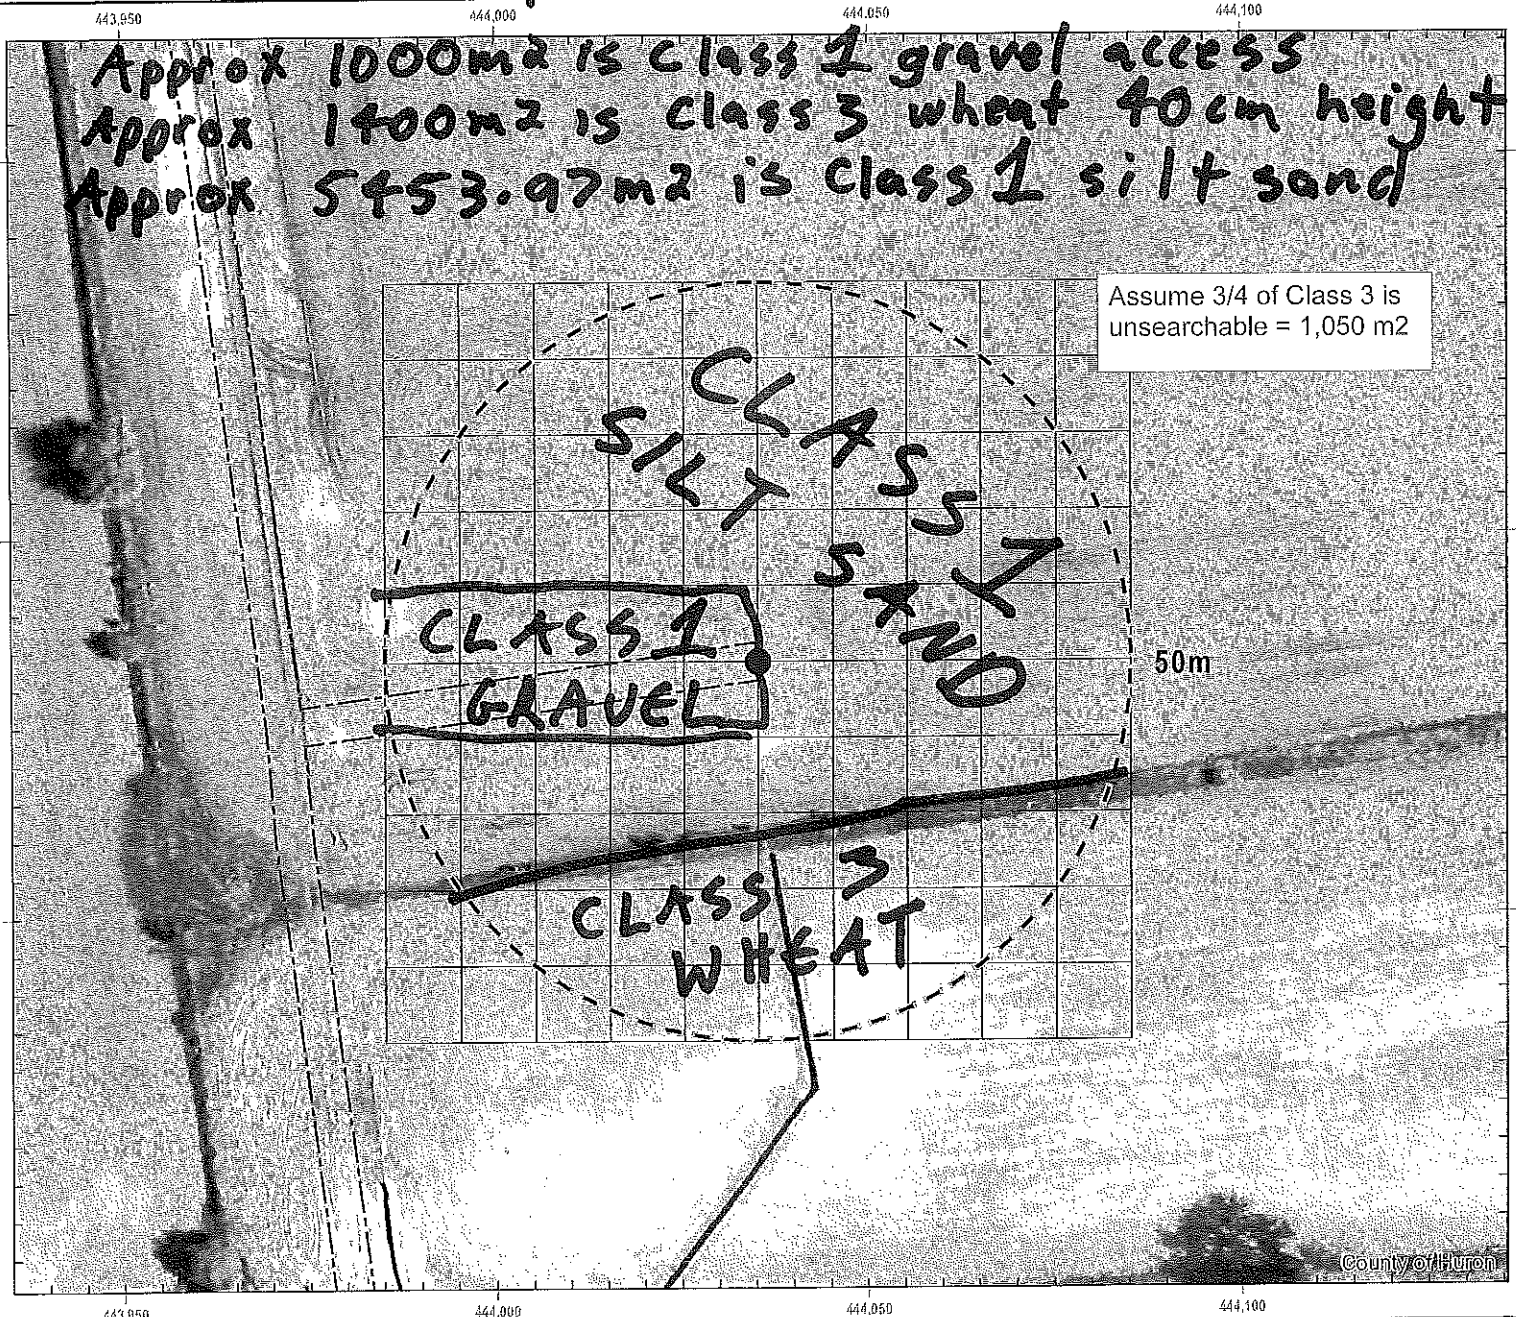 443,950 444,000 444,050 444,100
Approx 1000m2 is Class 1 gravel access
Approx 1400m2 is Class 3 wheat 40cm height
Approx 5453.97m2 is Class 1 silt sand
Assume 3/4 of Class 3 is
unsearchable = 1,050 m2
CLASS 1
SILT SAND
CLASS 1
GRAVEL
50m
CLASS 3
WHEAT
County of Huron
443,950 444,000 444,050 444,100